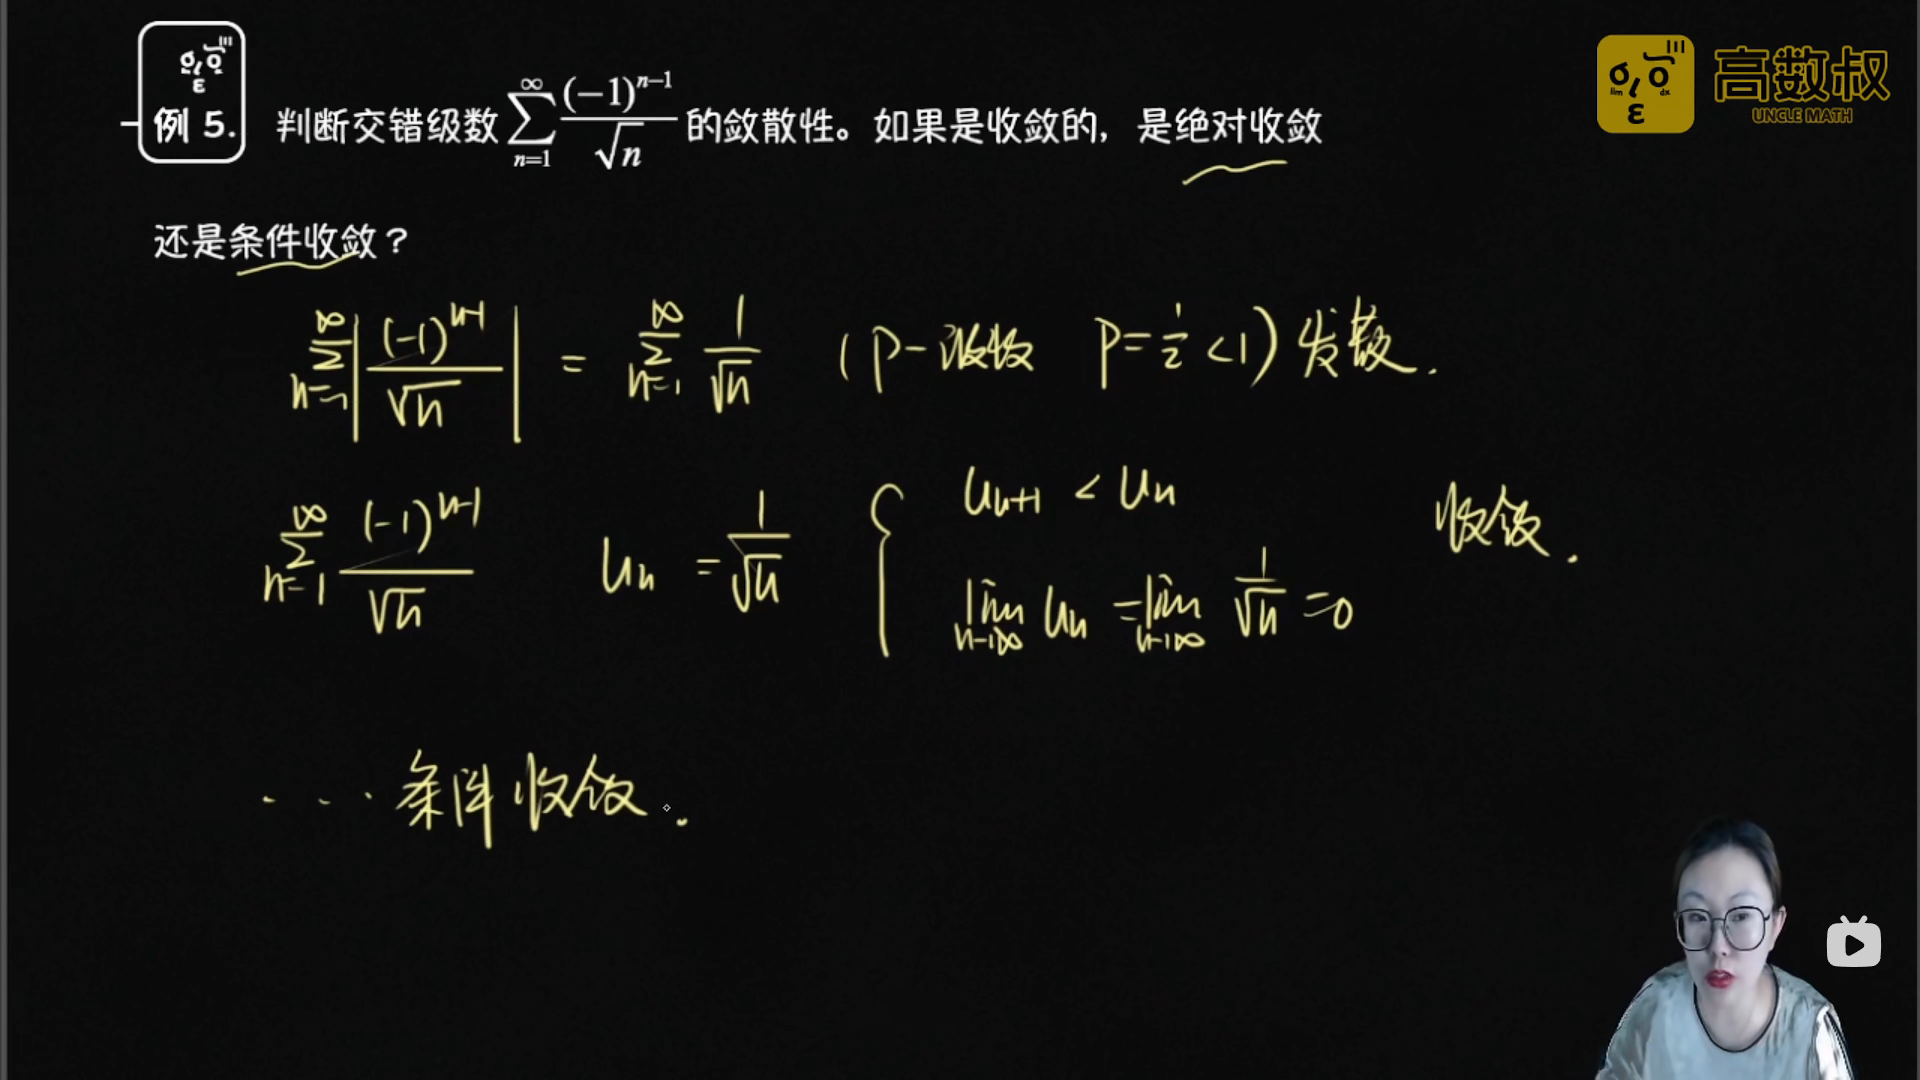 高数叔
UNCLE MATH
例 5. 判断交错级数 \sum_{n=1}^{\infty} \frac{(-1)^{n-1}}{\sqrt{n}} 的敛散性。如果是收敛的，是绝对收敛
还是条件收敛？
\sum_{n=1}^{\infty} \left| \frac{(-1)^{n-1}}{\sqrt{n}} \right| = \sum_{n=1}^{\infty} \frac{1}{\sqrt{n}} (P-级数 P=\frac{1}{2}<1) 发散.
\sum_{n=1}^{\infty} \frac{(-1)^{n-1}}{\sqrt{n}} u_n = \frac{1}{\sqrt{n}} { u_{n+1} < u_n 收敛.
\lim_{n→∞} u_n = \lim_{n→∞} \frac{1}{\sqrt{n}} = 0
... 条件收敛.